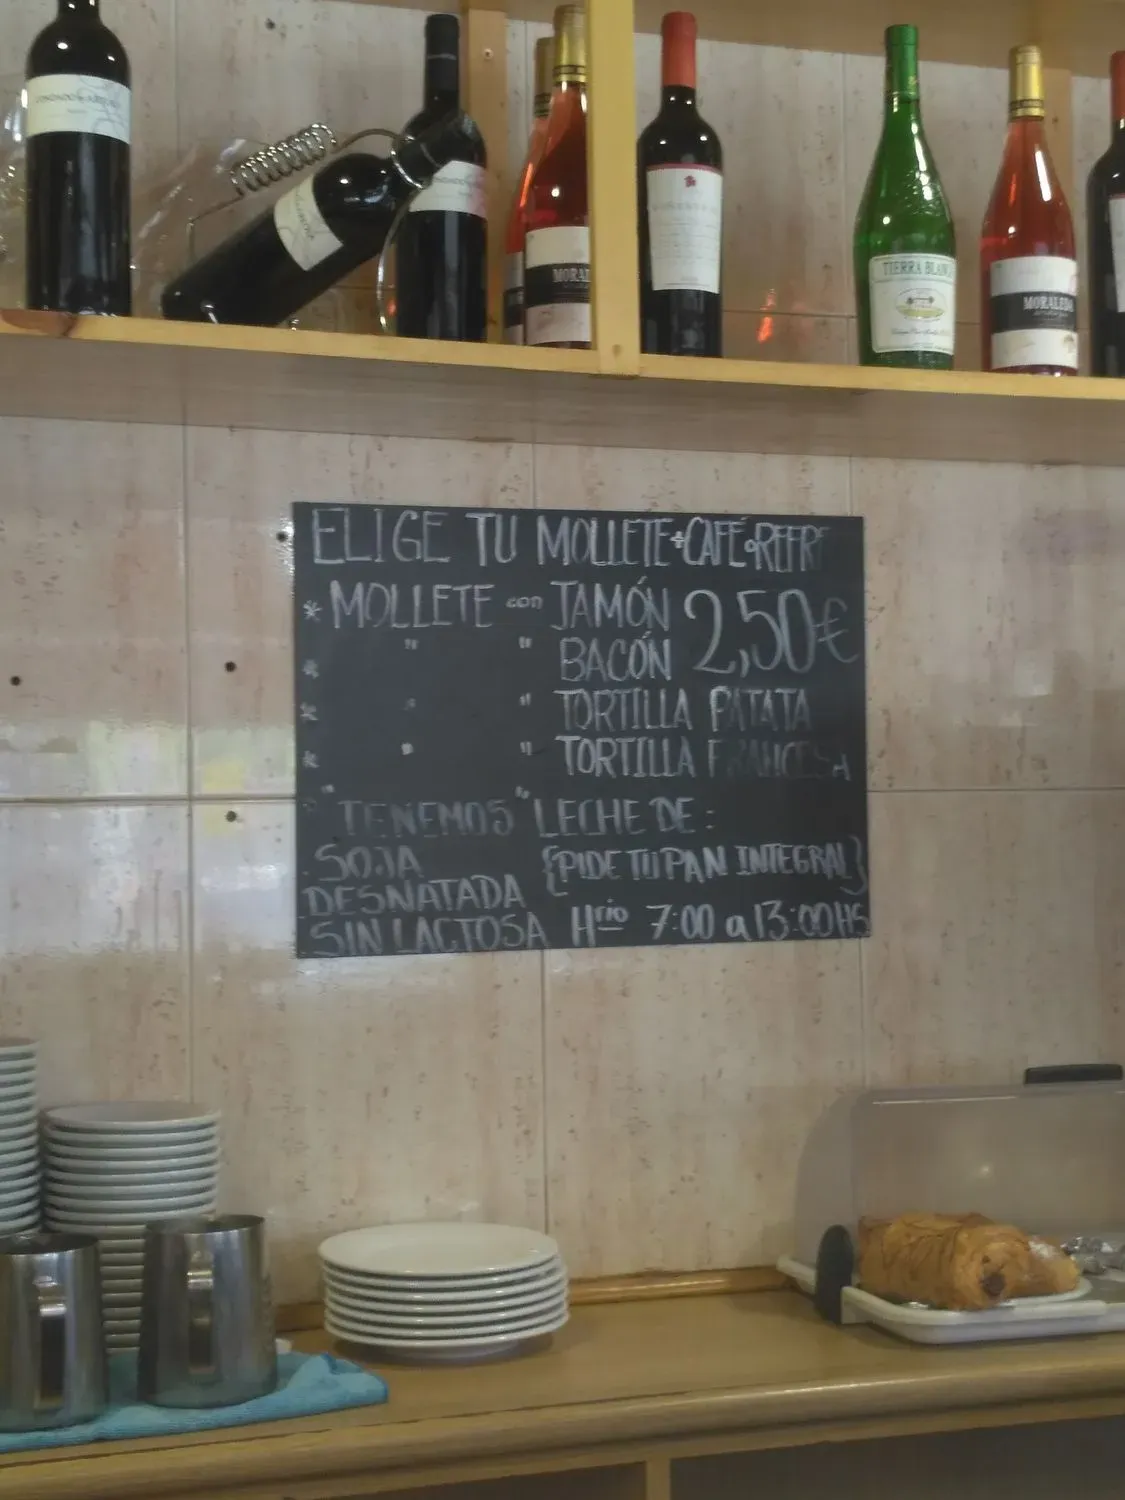 TIERRA BLANC
MORALEDA
ELIGE TU MOLLETE+CAFÉ o REFRE
* MOLLETE con JAMÓN 2,50€
* " " BACÓN
* " " TORTILLA PATATA
* " " TORTILLA FRANCESA
"TENEMOS" LECHE DE:
SOJA {PIDE TU PAN INTEGRAL}
DESNATADA
SIN LACTOSA Hrio 7:00 a 13:00HS